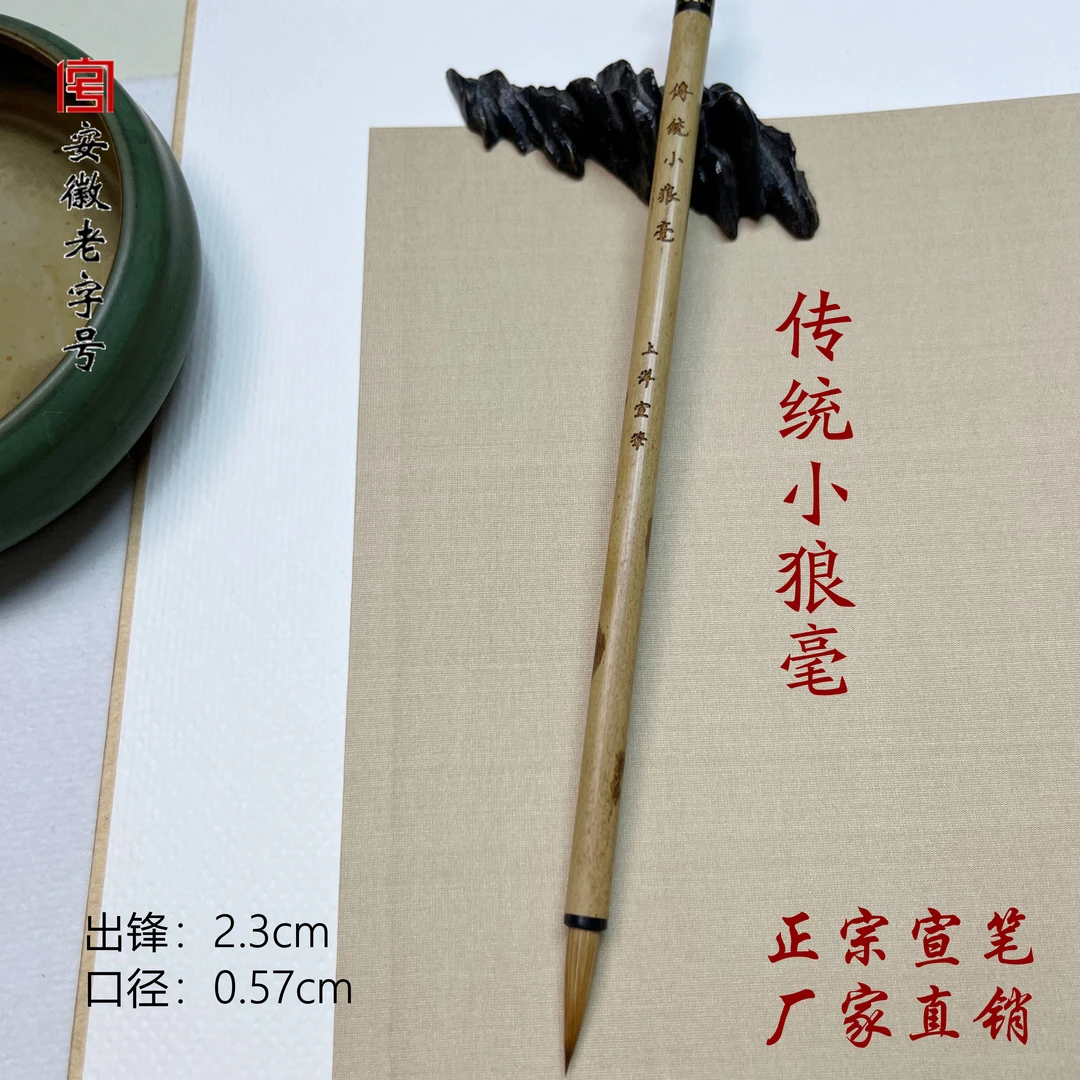 安徽老字号
傳统小狼毫
上洋宣筆
传统小狼毫
出锋：2.3cm
口径：0.57cm
正宗宣笔
厂家直销